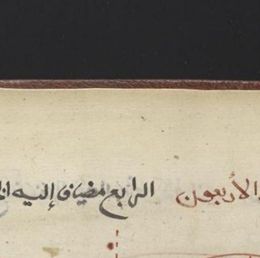 الأربعون الرابع مضاف إليه